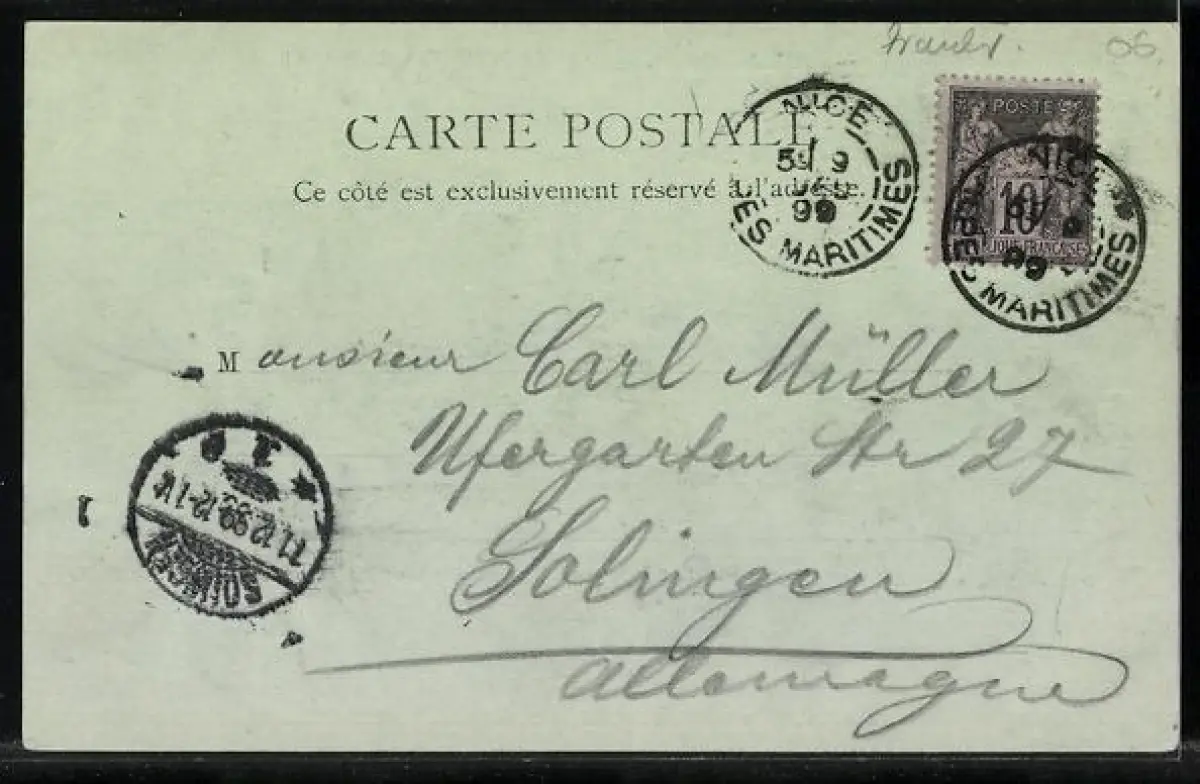 06
CARTE POSTALE
Ce côté est exclusivement réservé à l'adresse.
NICE
5E 9
99
ALPES MARITIMES
POSTE
10
RÉPUBLIQUE FRANÇAISE
NICE
99
MARITIMES
Monsieur Carl Müller
Ufergarten Str 27
Solingen
Allemagne
SOLINGEN
11.12.99.12-1N.